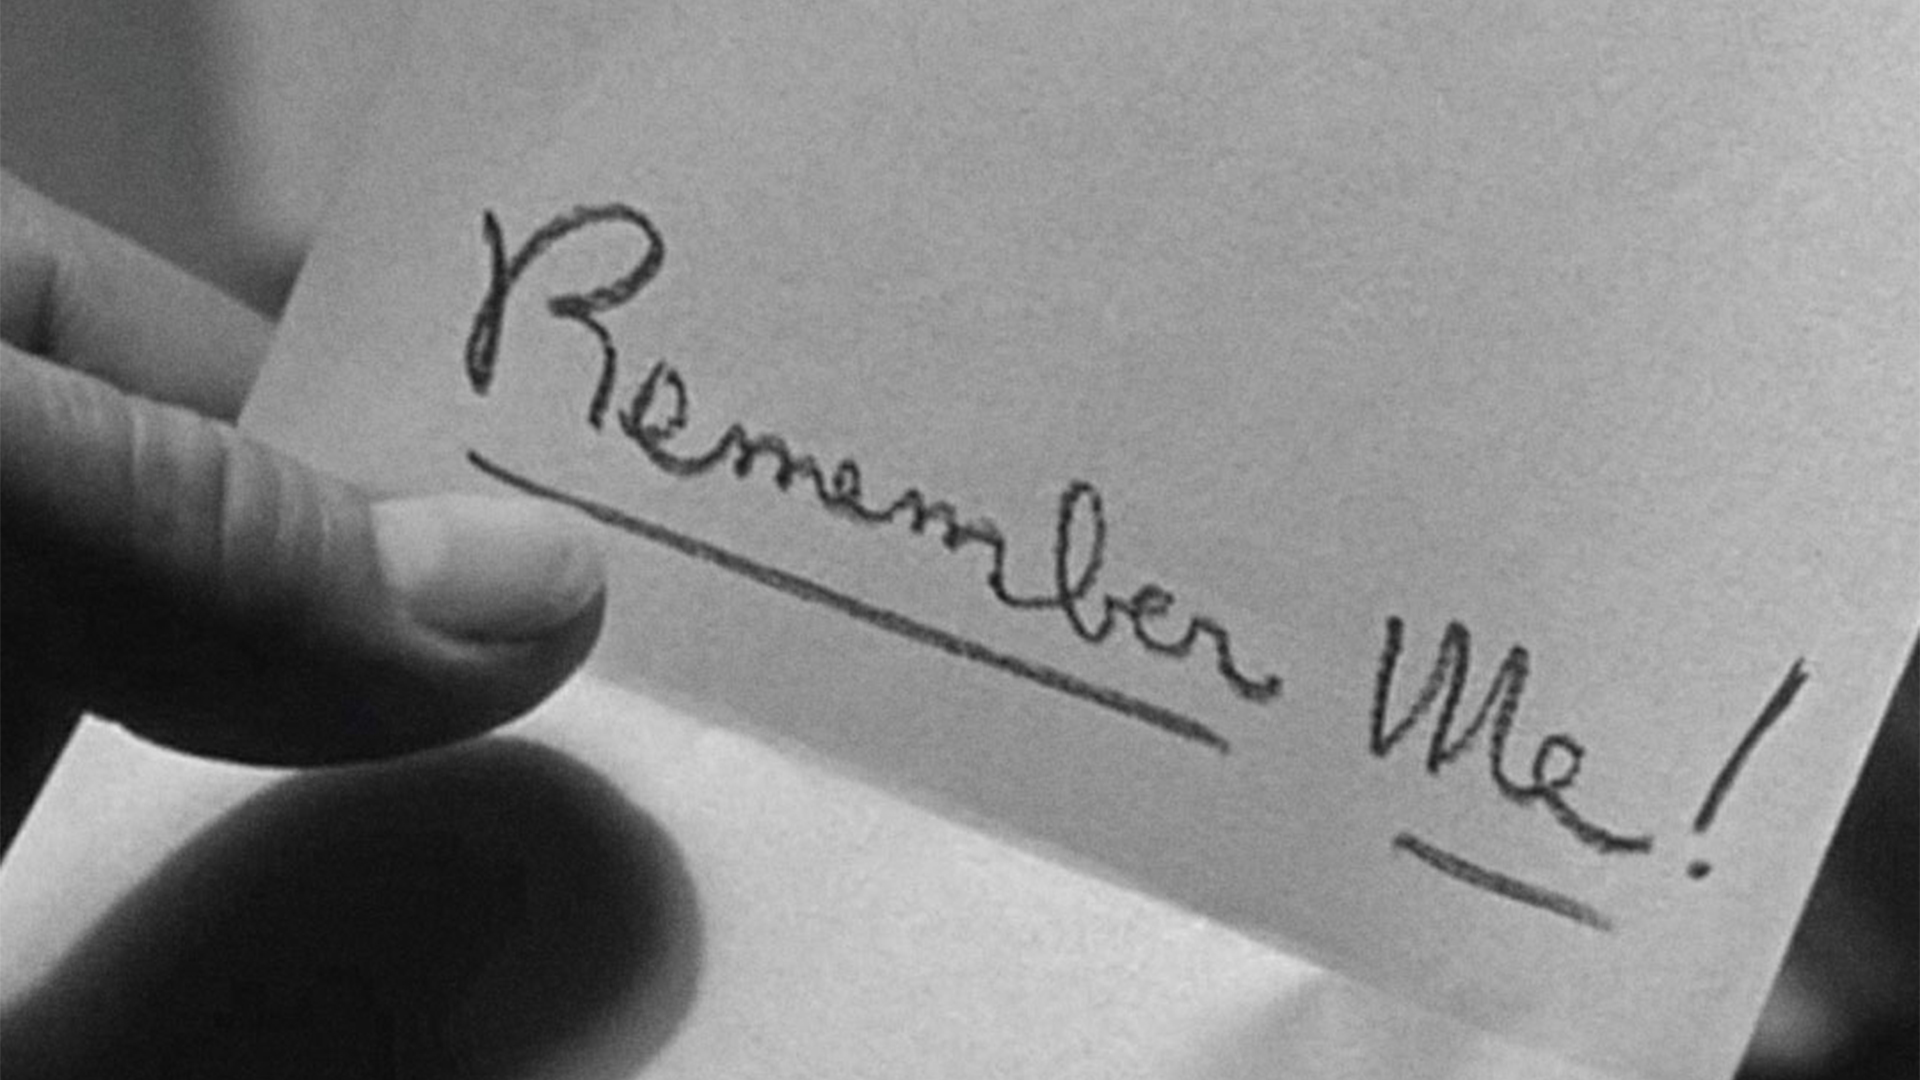 Remember Me!